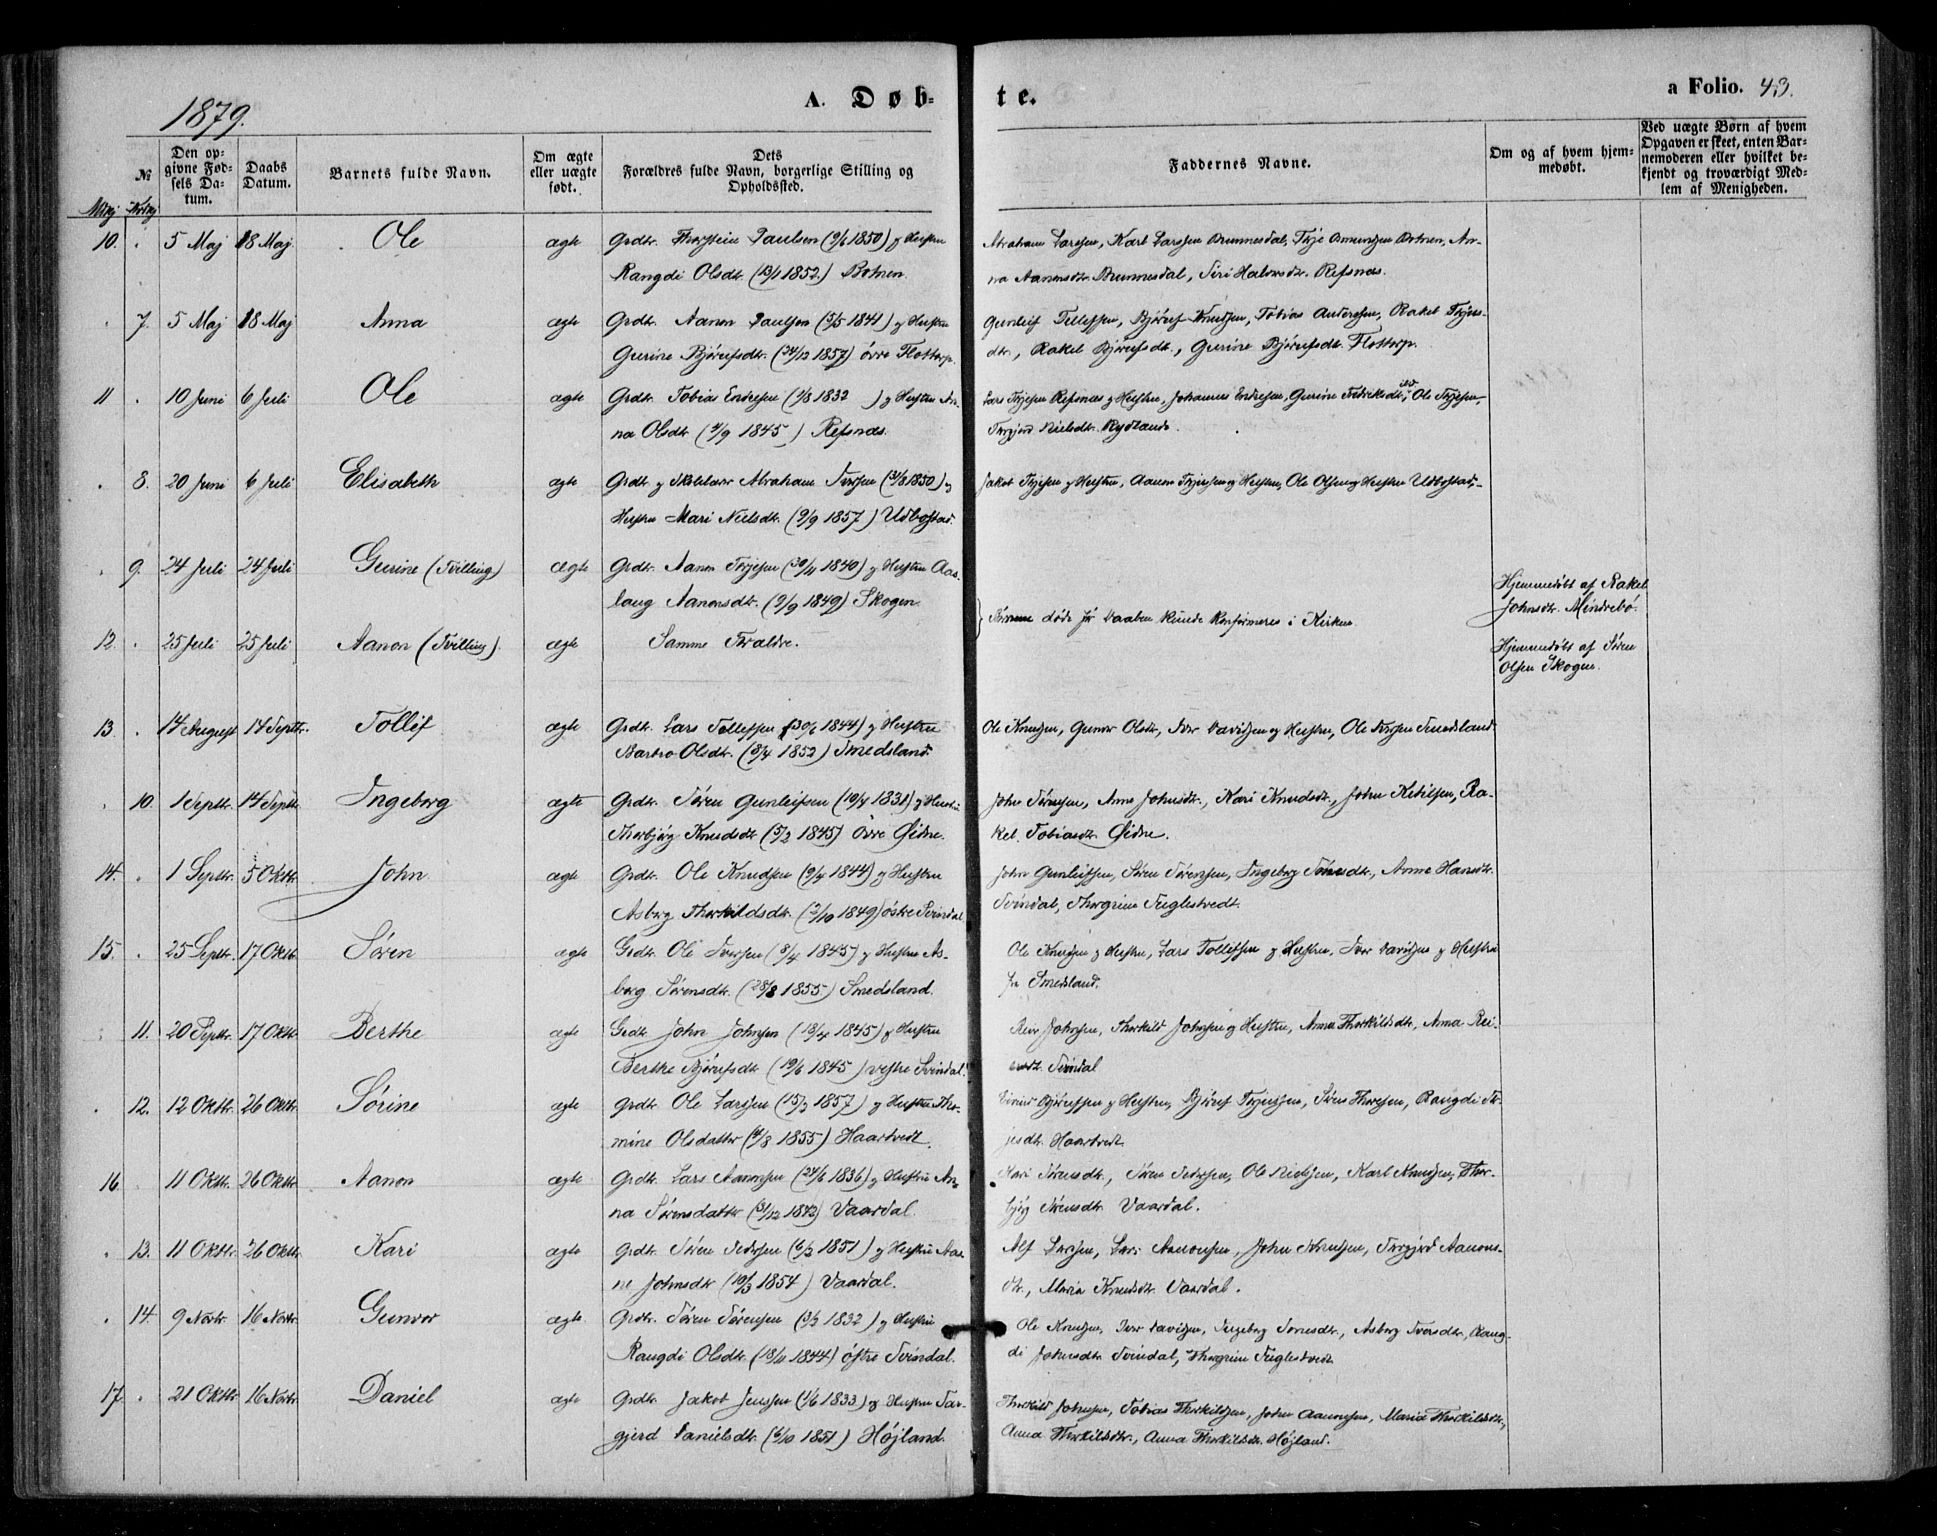 1879.
A. Døb-
te.
a Folio. 43.
Mkøj Kvkøj
№
Den op-
givne Fød-
sels Da-
tum.
Daabs
Datum.
Barnets fulde Navn.
Om ægte
eller uægte
født.
Dets
Forældres fulde Navn, borgerlige Stilling og
Opholdssted.
Faddernes Navne.
Om og af hvem hjem-
medøbt.
Ved uægte Børn af hvem
Opgaven er skeet, enten Bar-
nemoderen eller hvilket be-
kjendt og troværdigt Med-
lem af Menigheden.
10. 5 Maj 18 Maj. Ole ægte Grdr. Thorstein Paulsen (9/6 1850) og Hustru
Rangdi Olsdtr. (13/1 1852) Botnen.
Abraham Larssen, Karl Larssen Brunnesdal, Terje Omundsen Botnen, An-
na Aanonsdtr. Brunnesdal, Siri Halvorsdtr. Refsnæs.
7. 5 Maj 18 Maj Anna ægte Grdr. Aanon Paulsen (5/5 1841) og Hustru
Gurine Bjørufsdtr. (24/12 1857) øvre Flottorp.
Gunleif Tellefsen, Bjøruf Knudsen, Tobias Anderssen, Rakel Terjes-
dtr., Rakel Bjørufsdtr., Gurine Bjørufsdtr. Flottorp.
11 10 Juni 6 Juli Ole ægte Grdr. Tobias Endresen (1/8 1832 ) og Hustru An-
na Olsdtr. (4/9 1845) Refsnæs.
Lars Terjesen Refsnæs og Hustru, Johannes Endresen, Gurine Fredriksdtr. ibd, Ole Terjesen,
Torgjerd Nielsdtr. Rydland.
8. 20 Juni 6 Juli Elisabeth ægte Grdr. og Skolelærer Abraham Iversen (31/8 1850) og
Hustru Mari Nielsdtr. (9/9 1857) Udbøstad.
Jakob Terjesen og Hustru, Aanon Terjesen og Hustru, Ole Olsen og Hustru Udbøstad.
9. 24 Juli 24 Juli Gurine (Tvilling) ægte Grdr. Aanon Terjesen (30/11 1840) og Hustru Aas-
laug Aanonsdtr. (9/9 1849) Skogen.
Børnene døde før Daaben kunde konfirmeres i Kirken
Hjemmedøbt af Rakel
Johnsdtr. Mindrebø.
12. 25 Juli 25 Juli Aanon (Tvilling). ægte Samme Forældre.
Hjemmedøbt af Søren
Olsen Skogen.
13. 14 August 14 Septbr. Tollif ægte Grdr. Lars Tollefsen (30/6 1844) og Hustru
Barbro Olsdtr. (8/4 1852) Smedsland.
Ole Knudsen, Gunvor Olsdtr, Iver Davidsen og Hustru, Ole Iversen Smedsland
10. 1 Septbr. 14 Septbr Ingeborg ægte Grdr. Søren Gunleifsen (10/4 1831) og Hustru
Thorbjørg Knudsdtr (5/2 1845) øvre Øidne.
John Sørensen, Anne Johnsdtr., Kari Knudsdtr., John Ketilsen, Ra-
kel Tobiasdtr. Øidne.
14. 1 Septbr. 5 Oktbr. John ægte Grdr. Ole Knudsen (9/4 1844) og Hustru
Asborg Therkildsdtr. (3/10 1849) østre Svindal.
John Gunleifsen, Søren Sørensen, Ingeborg Tønesdtr., Anne Hansdtr.
Svindal, Thorgrim Fuglestvedt.
15. 25 Septbr. 17 Oktb. Søren ægte Grdr. Ole Iversen (8/4 1845) og Hustru As-
borg Sørensdtr. (28/8 1855) Smedsland.
Ole Knudsen og Hustru, Lars Tollefsen og Hustru, Iver Davidsen og Hustru
fra Smedsland.
11. 20 Septbr. 17 Oktbr Berthe ægte Grdr. John Johnsen (18/4 1845) og Hustru
Berthe Bjørufsdtr (19/6 1845) vestre Svindal.
Reier Johnsen, Therkild Johnsen og Hustru, Anna Therkildsdtr, Anna Rei-
ersdtr. Svindal
12. 12 Oktbr. 26 Oktbr Sørine ægte Grdr. Ole Larssen (15/3 1857) og Hustru Tho-
mine Olsdatter (4/8 1855) Haartvedt.
Bjørufsen og Hustru, Bjøruf Terjesen, Søren Thoresen, Rangdi Ter-
jesdtr. Haartvedt.
16 11 Oktbr. 26 Oktbr Aanon ægte Grdr. Lars Aanonsen (24/6 1836) og Hustru An-
na Sørensdatter (3/12 1842) Vaardal.
Mari Sørensdtr., Søren Pedersen, Ole Nielsen, Karl Knudsen, Thor-
bjørg Sørensdtr. Vaardal.
13. 11 Oktbr. 26 Oktbr Kari ægte Grdr. Søren Pedersen (6/3 1851) og Hustru Aa-
ne Johnsdtr (10/3 1854) Vaardal.
Alf Larssen, Lars Aanonsen, John Knudsen, Torgjerd Aanons-
dtr., Maria Knudsdtr. Vaardal.
14. 9 Novbr 16 Novbr Gunvor ægte Grdr. Søren Sørensen (3/3 1832) og Hustru
Rangdi Olsdtr. (18/11 1844) østre Svindal.
Ole Knudsen, Iver Davidsen, Ingeborg Tønesdtr., Asborg Iversdtr., Rang-
di Johnsdtr. Svindal, Thorgrim Fuglestvedt
17 21 Oktbr 16 Novbr Daniel ægte Grdr. Jakob Jenssen (1/6 1833) og Hustru Tor-
gjerd Danielsdtr. (6/10 1851) Højland.
Therkild Johnsen, Tobias Therkildsen, John Aanonsen, Maria Therkildsdtr,
Anna Therkildsdtr., Anna Therkildsdtr. Højland.